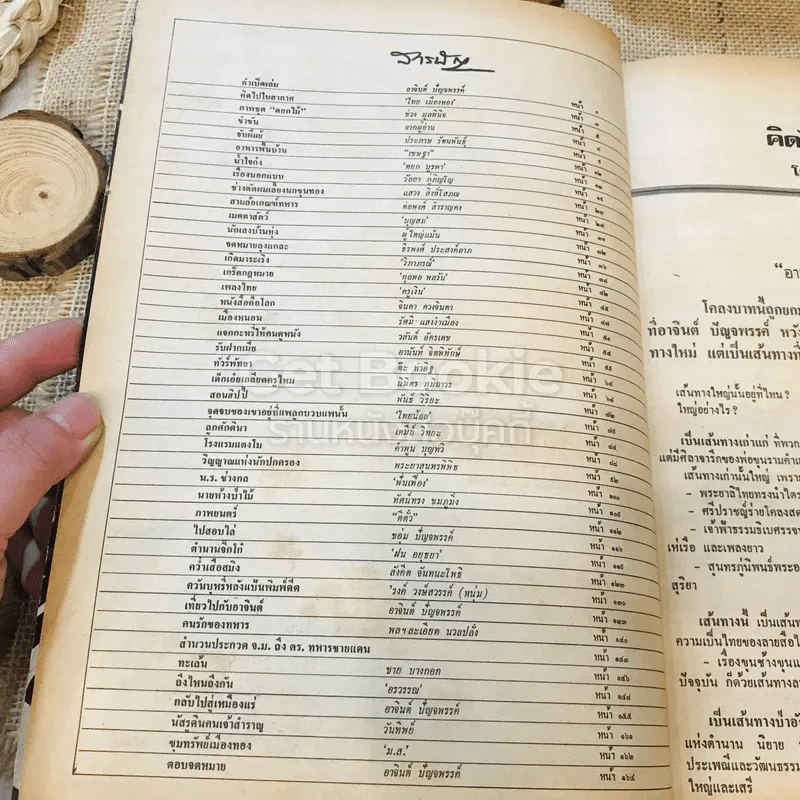 สารบัญ
คำเปิดเล่ม อาจินต์ ปัญจพรรค์ หน้า
คิดไปในอากาศ 'ไทย เมืองทอง' หน้า
ภาพชุด "ดอกไม้" ช่วง มูลพินิจ หน้า ๕
ขำขัน จากผู้อ่าน หน้า ๘
จับผีแย้ ประภาษ รัตนพันธุ์ หน้า ๙
อาหารพื้นบ้าน "เชษฐา" หน้า ๑๒
น้ำใจกุ้ง 'หยก บูรพา' หน้า ๑๓
เรื่องนอกแบบ วัลยา ภู่ภิญโญ หน้า ๑๕
ช่างตัดผมเลี้ยงนกขุนทอง แสวง สิงห์โสภณ หน้า
สามล้อเกณฑ์ทหาร ต่อพงศ์ สำราญคง หน้า ๒๘
เมตตาสัตว์ 'บุญสม' หน้า ๓๑
นักเลงบ้านทุ่ง ผู้ใหญ่แม้น หน้า ๓๒
จดหมายลุงแกละ ธีรพงศ์ ประสงค์ลาภ หน้า ๓๖
เกิดมาระเริง 'วิภาภรณ์' หน้า ๓๔
เกร็ดกฎหมาย 'กุลพล พลวัน' หน้า ๔๒
เพลงไทย 'ครูเงิน' หน้า ๔๘
หนังสือคือโลก จินดา ดวงจินดา หน้า ๕๐
เมืองหนอน รัศมี แสงงำเมือง หน้า ๕๔
แจกกะหรี่ให้คนดูหนัง วสันต์ อัครเดช หน้า ๕๕
รับฝากเมีย อานันท์ จิตพิทักษ์ หน้า
ทัวร์พัทยา ต๊ะ ท่าอิฐ หน้า
เด็กเอ๋ยเกลียดครูไหม นิมิตร ภูมิถาวร หน้า ๖๘
สอนฮิปปี้ พันธ์ วิริยะ หน้า
จุดจบของเขาอยู่ที่แพลกบวบแพนั้น 'ไทยน้อย' หน้า
ลูกศักดินา เตมีย์ วิทยะ หน้า
โรงแรมแตงโม คำพูน บุญทวี หน้า ๘๔
วิญญาณแห่งนักปกครอง พระยาสุนทรพิพิธ หน้า ๘๘
น.ร. ช่างกล 'พื้นเพื่อง' หน้า ๙๒
นายห้างป่าไม้ ทัศน์ทรง ชมภูมิ่ง หน้า ๑๐๐
ภาพยนตร์ "ดีดั่ว" หน้า ๑๐๙
ไปสอบไล่ ขอุ่ม ปัญจพรรค์ หน้า ๑๑๒
ตำนานจิกโก๋ 'ฝน อยุธยา' หน้า ๑๑๖
คว่ำเสือสมิง สังคีต จันทนะโพธิ หน้า ๑๑๙
ควันบุหรี่หลังแป้นพิมพ์ดีด 'รงค์ วงษ์สวรรค์ (หนุ่ม) หน้า ๑๒๓
เที่ยวไปกับอาจินต์ อาจินต์ ปัญจพรรค์ หน้า ๑๓๑
คนรักของทหาร พลฯ ละเอียด นวลปลั่ง หน้า ๑๓๓
สำนวนประกวด จ.ม. ถึง ตร. ทหารชายแดน หน้า ๑๔๐
ทะเล้น หน้า ๑๔๓
ถึงไหนถึงกัน ชาย บางกอก หน้า ๑๔๖
กลับไปสู่เหมืองแร่ 'อรวรรณ' หน้า ๑๔๘
นัสรูดินคนเจ้าสำราญ อาจินต์ ปัญจพรรค์ หน้า ๑๕๕
ขุมทรัพย์เมืองทอง วันทิพย์ หน้า ๑๖๑
ตอบจดหมาย 'ม.ส.' หน้า ๑๖๒
อาจินต์ ปัญจพรรค์ หน้า ๑๖๔
Get Bookie
ร้านหนังสือบุ๊คกี้
คิด
โ
"อา
โคลงบาทนี้ลูกยกม
ที่อาจินต์ ปัญจพรรค์ หวั
ทางใหม่ แต่เป็นเส้นทางที่
เส้นทางใหญ่นั้นอยู่ที่ไหน?
ใหญ่อย่างไร?
เป็นเส้นทางเก่าแก่ ที่พวก
แต่มีศิลาจารึกของพ่อขุนรามคำแ
เส้นทางเก่านั้นใหญ่ เพราะ
- พระยาลิไทยทรงนำไตร
- ศรีปราชญ์ร่ายโคลงสด
- เจ้าฟ้าธรรมธิเบศรรจ
เห่เรือ และเพลงยาว
- สุนทรภู่นิพนธ์พระอ
สุริยา
เส้นทางนี้ เป็นเส้นท
ความเป็นไทยของลายสือไ
- เรื่องขุนช้างขุน
ปัจจุบัน ก็ด้วยเส้นทางส
เป็นเส้นทางป่าอั
แห่งตำนาน นิยาย
ประเพณีและวัฒนธรรม
ใหญ่และเสรี